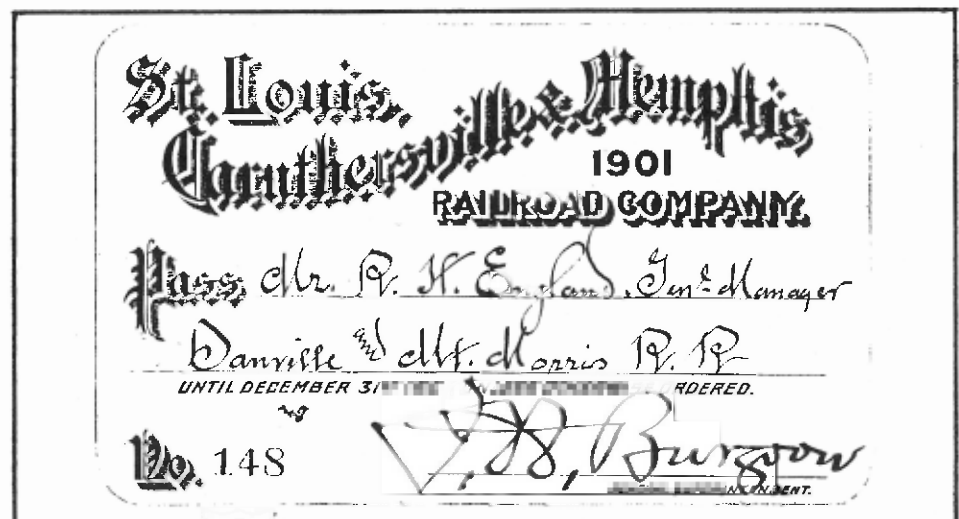 St. Louis,
Caruthersville & Memphis
1901
RAILROAD COMPANY.
Pass Mr. R. H. England, Genl Manager
Danville and Mt. Morris R. R.
UNTIL DECEMBER 31ST ORDERED.
No. 148